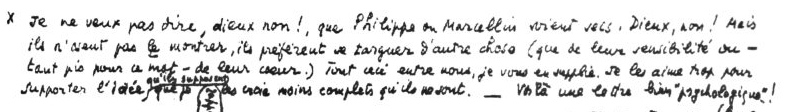 x Je ne veux pas dire, dieux non !, que Philippe ou Marcellin soient secs. Dieux, non ! Mais
ils n'aient pas le montrer, ils préfèrent se targuer d'autre chose (que de leur sensibilité ou -
tant pis pour ce mot - de leur cœur.) Tout ceci entre nous, je vous en supplie. Je les aime trop pour
qu'ils supposent
supporter l'idée que je les croie moins complets qu'ils ne sont. — Voilà une lettre bien "psychologique" !